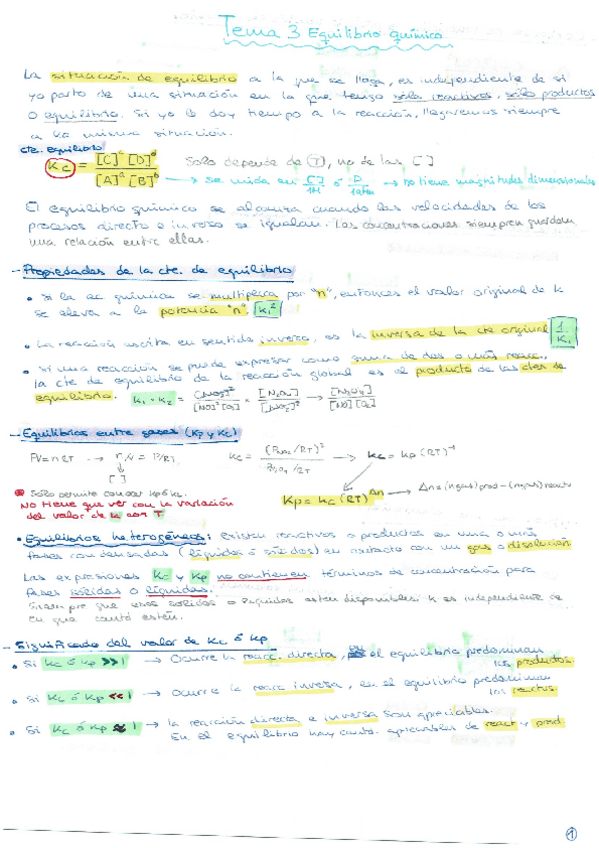 Tema 3 Equilibrio químico
La situación de equilibrio a la que se llega, es independiente de si
yo parto de una situación en la que tengo sólo reactivos, sólo productos
o equilibrio. Si yo le doy tiempo a la reacción, llegaremos siempre
a la misma situación.
cte. equilibrio
Kc = [C]ᶜ [D]ᵈ / [A]ᵃ [B]ᵇ Sólo depende de (T), no de las [ ]
→ se mida en [ ]/1M ó P/1atm → no tiene magnitudes dimensionales
El equilibrio químico se alcanza cuando las velocidades de los
procesos directo e inverso se igualan. Las concentraciones siempre guardan
una relación entre ellas.
- Propiedades de la cte. de equilibrio
• Si la ec química se multiplica por "n", entonces el valor original de k
se eleva a la potencia "n",
• La reacción escrita en sentido inverso, es la inversa de la cte original 1/K₁
• Si una reacción se puede expresar como suma de dos o más reacc.,
la cte de equilibrio de la reacción global es el producto de las ctes de
equilibrio. K₁ · K₂ = [NO₂]² / [NO]² [O₂] × [N₂O₄] / [NO₂]² →
- Equilibrios entre gases (Kp y Kc)
PV = nRT → n/V = P/RT Kc = (P /RT)² / P /RT → Kc = Kp (RT)⁻¹
[ ]
Kp = Kc (RT)^Δn → Δn = (n gas) prod - (n gas) react
Sólo permite Kp ó Kc.
No tiene que ver con la variación
del valor de la con T.
• Equilibrios heterogéneos: existen reactivos o productos en una o más
fases condensadas (líquidos ó sólidos) en contacto con un gas o disolución
Las expresiones Kc y Kp no contienen términos de concentración para
fases sólidas o líquidas.
Siempre que esos sólidos o líquidos estén disponibles: K es independiente de
en que cantd estén.
- Significado del valor de Kc ó Kp
• Si Kc ó Kp >> 1 → Ocurre la reacc. directa, el equilibrio predominan
los productos.
• Si Kc ó Kp << 1 → Ocurre la reacc inversa, en el equilibrio predominan
los
• Si Kc ó Kp ≈ 1 → la reacción directa e inversa son apreciables.
En el equilibrio hay cantd. apreciables de react y prod.
1